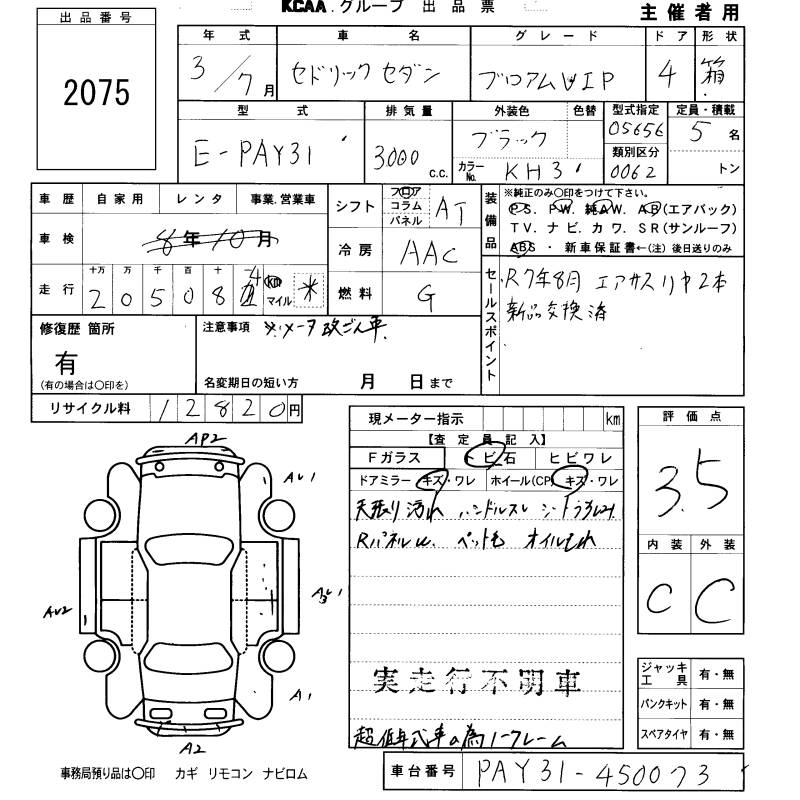 KCAA.グループ 出品票 主催者用
出品番号
2075
年式 車名 グレード ドア 形状
3/7月 セドリック セダン ブロアムVIP 4 箱
型式 排気量 外装色 色替 型式指定 定員・積載
E-PAY31 3000 c.c. ブラック 05656 5名
カラーNo. KH3 類別区分 0062 トン
車歴 自家用 レンタ 事業.営業車
車検 8年10月
走行 十万 万 千 百 十
2 0 5 0 8 4 km マイル *
シフト フロア コラム パネル AT
冷房 AAC
燃料 G
装備品 ※純正のみ〇印をつけて下さい。
PS. PW. 純AW. AB(エアバック)
TV. ナビ. カワ. SR(サンルーフ)
ABS ・ 新車保証書←(注) 後日送りのみ
セールスポイント R7年8月 エアサスリヤ2本
新品交換済
修復歴 箇所
有
(有の場合は〇印を)
注意事項 ※メータ改ざん車
名変期日の短い方 月 日まで
リサイクル料 12820円
現メーター指示 km
【査定員記入】
Fガラス トビ石 ヒビワレ
ドアミラー キズ・ワレ ホイール(CP) キズ・ワレ
天張り汚れ ハンドルスレ シート
Rパネル ペット毛 オイルもれ
実走行不明車
超低年式車の為ノークレーム
評価点
3.5
内装 外装
C C
ジャッキ工具 有・無
パンクキット 有・無
スペアタイヤ 有・無
AP2
AU1
AU2
A1
A2
事務局預り品は〇印 カギ リモコン ナビロム
車台番号 PAY31-450073